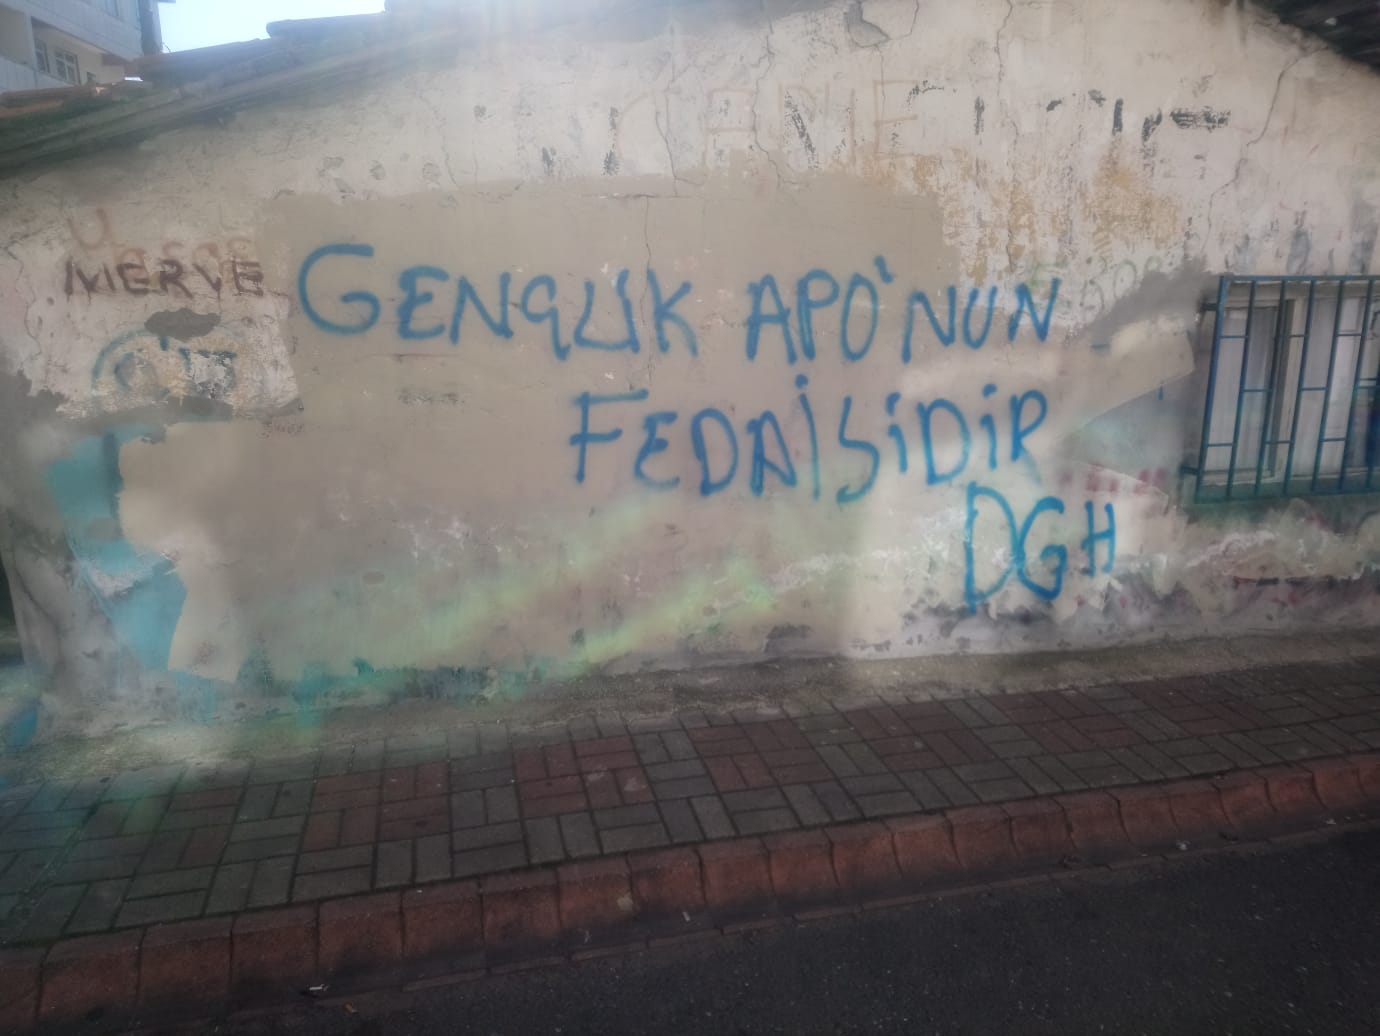 MERVE
GENÇLİK APO'NUN
FEDAİSİDİR
DGH